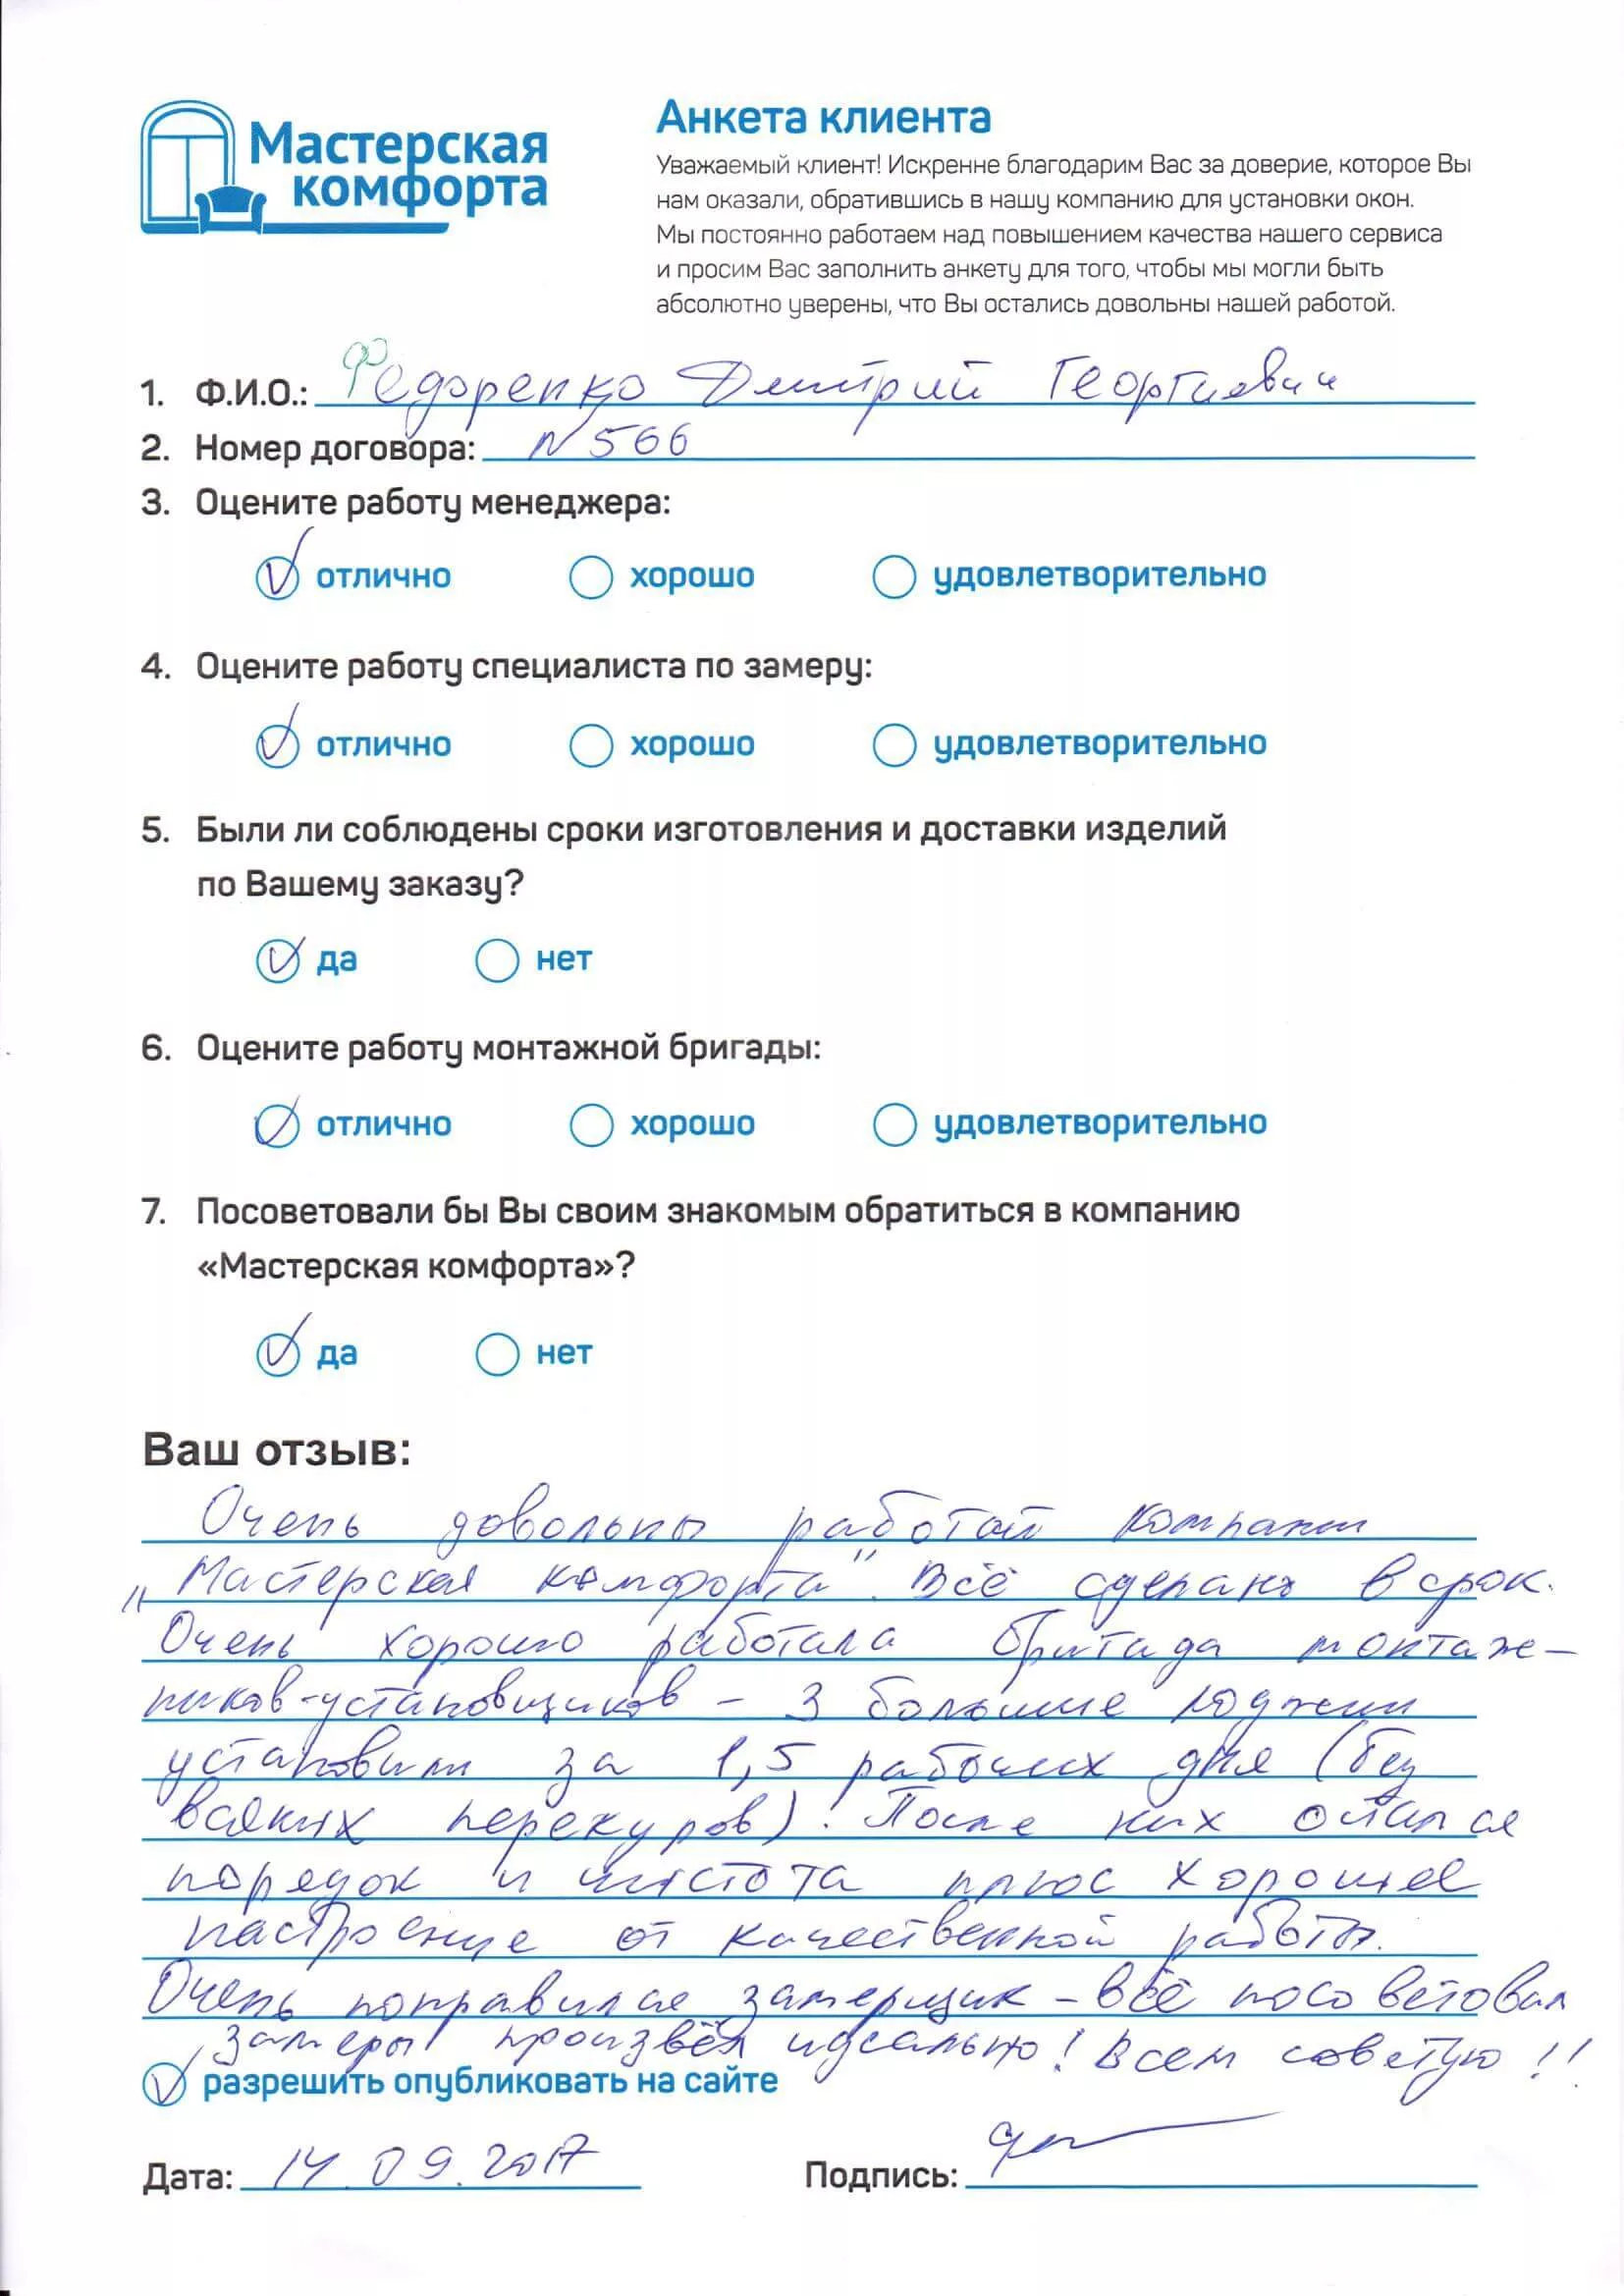 Мастерская
комфорта
Анкета клиента
Уважаемый клиент! Искренне благодарим Вас за доверие, которое Вы
нам оказали, обратившись в нашу компанию для установки окон.
Мы постоянно работаем над повышением качества нашего сервиса
и просим Вас заполнить анкету для того, чтобы мы могли быть
абсолютно уверены, что Вы остались довольны нашей работой.
1. Ф.И.О.: Федоренко Дмитрий Георгиевич
2. Номер договора: N 566
3. Оцените работу менеджера:
отлично хорошо удовлетворительно
4. Оцените работу специалиста по замеру:
отлично хорошо удовлетворительно
5. Были ли соблюдены сроки изготовления и доставки изделий
по Вашему заказу?
да нет
6. Оцените работу монтажной бригады:
отлично хорошо удовлетворительно
7. Посоветовали бы Вы своим знакомым обратиться в компанию
«Мастерская комфорта»?
да нет
Ваш отзыв:
Очень довольны работой компании
"Мастерская комфорта". Всё сделано в срок.
Очень хорошо работала бригада монтаж-
ников-установщиков – 3 большие лоджии
установили за 1,5 рабочих дня (без
всяких перекуров). После них остался
порядок и чистота плюс хорошее
настроение от качественной работы.
Очень понравился замерщик – всё посоветовал
замеры произвёл идеально! Всем советую!!
разрешить опубликовать на сайте
Дата: 14.09.2017 Подпись: